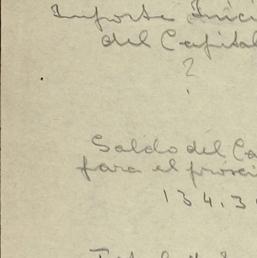 Importe Inici
del Capital
?
Saldo del Ca
para el próxi
134.3